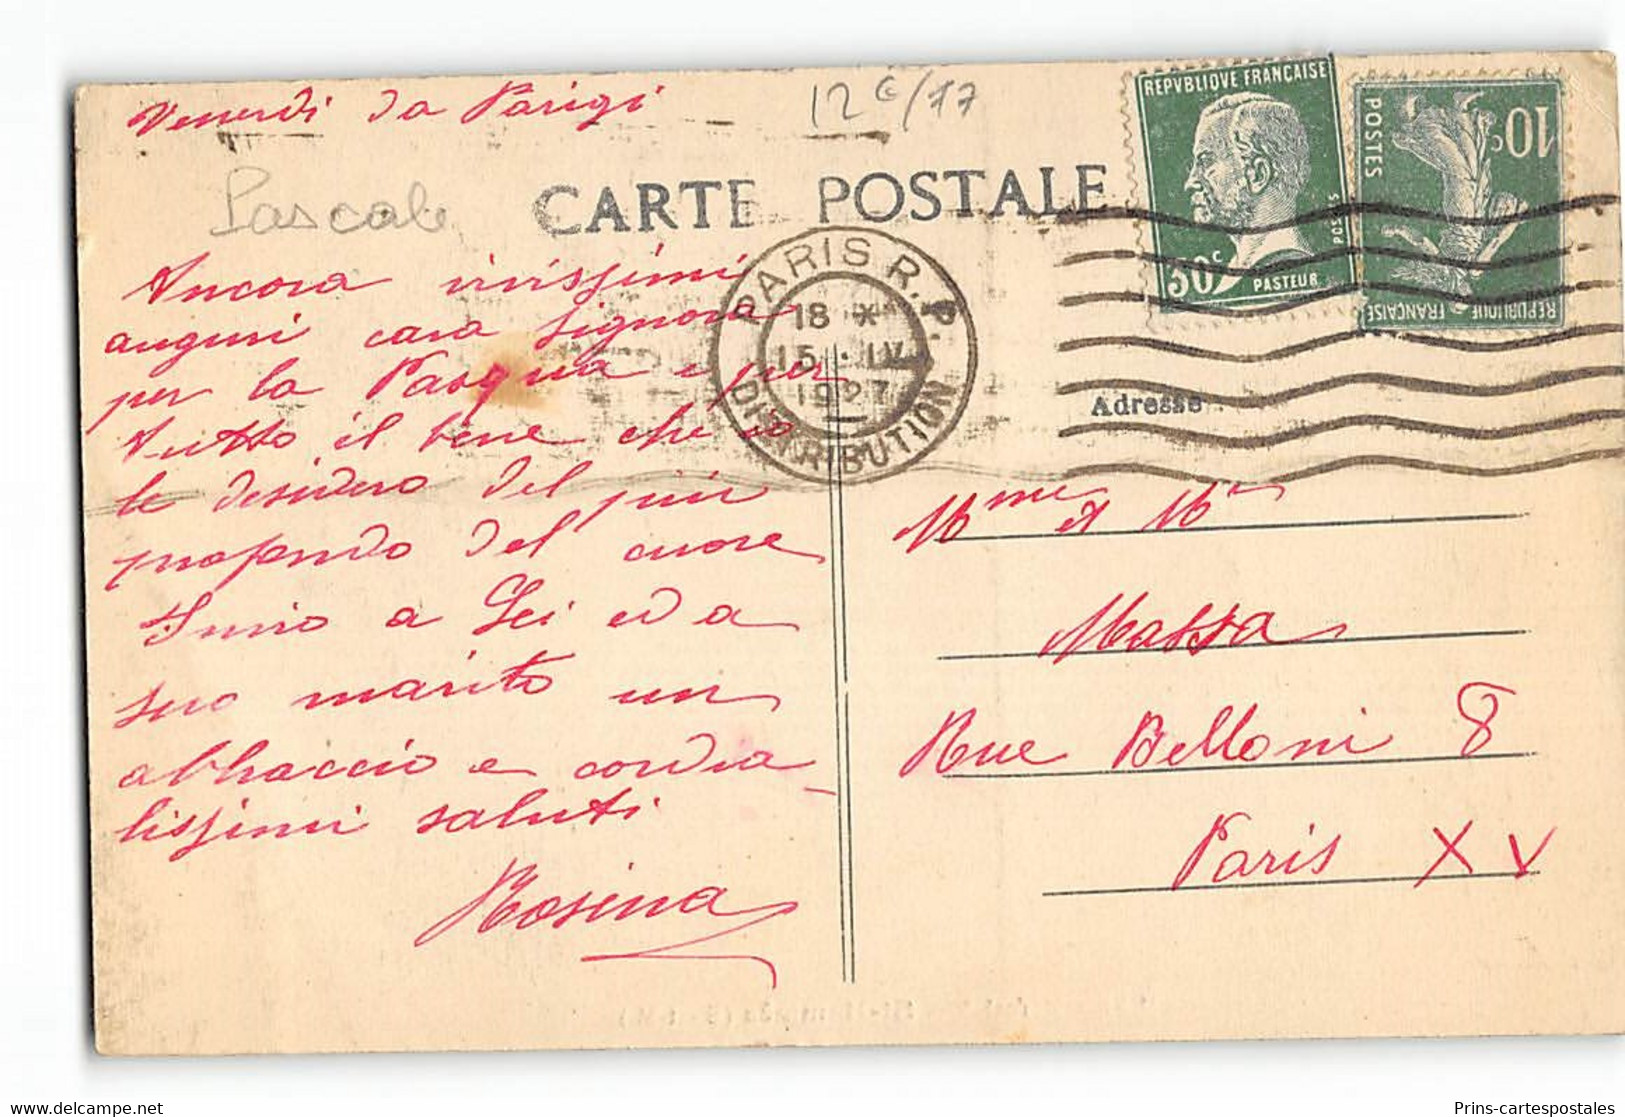 Venerdi da Parigi
12€/17
Pascale
CARTE POSTALE
REPVBLIQVE FRANÇAISE
30c
POSTES
PASTEUR
10c
POSTES
REPUBLIQUE FRANÇAISE
PARIS R.P.
18 X
15 · IV
1927
DISTRIBUTION
Adresse
Ancora vivissimi
auguri cara Signora
per la Pasqua e per
tutto il bene che io
le desidero del più
profondo del cuore
Invio a Lei ed a
suo marito un
abbraccio e cordia
lissimi saluti
Rosina
Mme et Mr
Massa
Rue Belloni 8
Paris XV
Prins-cartespostales